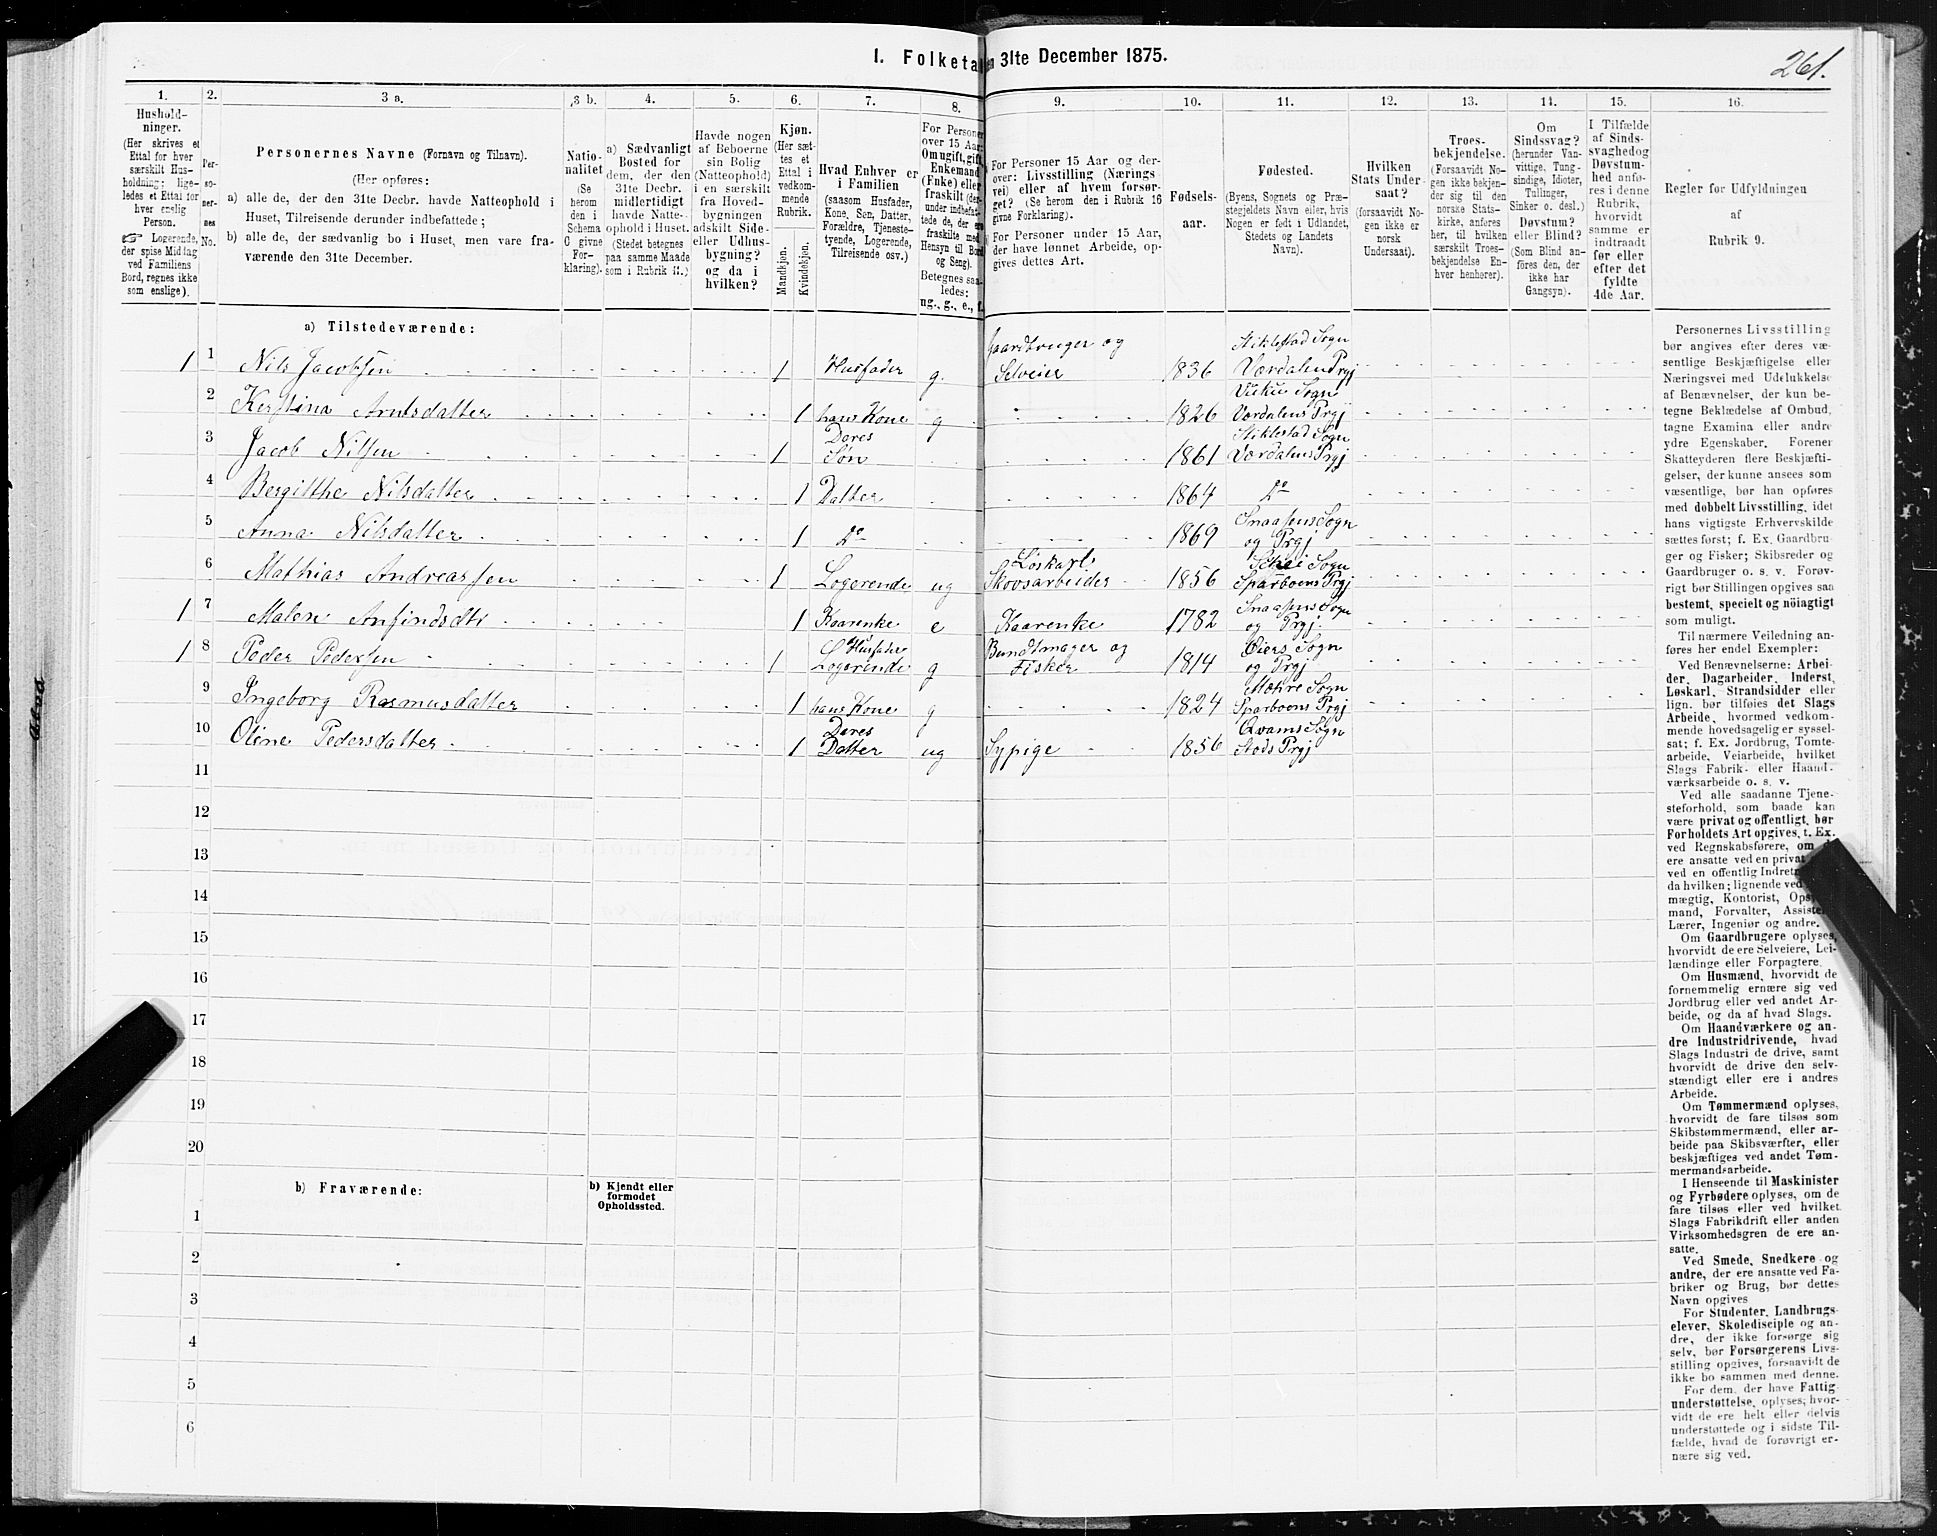 I. Folketæ en 31te December 1875.
261.
1.
2.
3 a.
3 b.
4.
5.
6.
7.
8.
9.
10.
11.
12.
13.
14.
15.
16.
Hushold-
ninger.
(Her skrives et
Ettal for hver
særskilt Hus-
holdning; lige-
ledes et Ettal for
hver enslig
Person.
☞ Logerende,
der spise Middag
ved Familiens
Bord, regnes ikke
som enslige).
Per-
so-
ner-
nes
No.
Personernes Navne (Fornavn og Tilnavn).
(Her opføres:
a) alle de, der den 31te Decbr. havde Natteophold i
Huset, Tilreisende derunder indbefattede;
b) alle de, der sædvanlig bo i Huset, men vare fra-
værende den 31te December.
Natio-
nalitet
(Se
herom
den i
Schema
C givne
For-
klaring).
a) Sædvanligt
Bosted for
dem, der den
31te Decbr.
midlertidigt
havde Natte-
ophold i Huset.
(Stedet betegnes
paa samme Maade
som i Rubrik 11.)
Havde nogen
af Beboerne
sin Bolig
(Natteophold)
i en særskilt
fra Hoved-
bygningen
adskilt Side-
eller Udhus-
bygning?
og da i
hvilken?
Kjøn.
(Her sæt-
tes et
Ettal i
vedkom-
mende
Rubrik.
Mandkjøn.
Kvindekjøn.
Hvad Enhver er
i Familien
(saasom Husfader,
Kone, Søn, Datter,
Forældre, Tjeneste-
tyende, Logerende,
Tilreisende osv.)
For Personer
over 15 Aar:
Om ugift, gift,
Enkemand
(Enke) eller
fraskilt (der-
under indbefat-
tede de, der ere
fraskilte med
Hensyn til Bord
og Seng).
Betegnes saa-
ledes:
ug., g., e., f.
For Personer 15 Aar og der-
over: Livsstilling (Nærings-
vei) eller af hvem forsør-
get? (Se herom den i Rubrik 16
givne Forklaring).
For Personer under 15 Aar,
der have lønnet Arbeide, op-
gives dettes Art.
Fødsels-
aar.
Fødested.
(Byens, Sognets og Præ-
stegjeldets Navn eller, hvis
Nogen er født i Udlandet,
Stedets og Landets
Navn).
Hvilken
Stats Under-
saat?
(forsaavidt No-
gen ikke er
norsk
Undersaat).
Troes-
bekjendelse.
(Forsaavidt No-
gen ikke bekjen-
der sig til den
norske Stats-
kirke, anføres
her, til hvilken
særskilt Troes-
bekjendelse En-
hver henhører).
Om
Sindssvag?
(herunder Van-
vittige, Tung-
sindige, Idioter,
Tullinger,
Sinker o. desl.)
Døvstum?
eller Blind?
(Som Blind an-
føres den, der
ikke har
Gangsyn).
I Tilfælde
af Sinds-
svaghed og
Døvstum-
hed anfø-
res i denne
Rubrik,
hvorvidt
samme er
indtraadt
før eller
efter det
fyldte
4de Aar.
Regler for Udfyldningen
af
Rubrik 9.
a) Tilstedeværende:
1 1 Nils Jacobsen 1 Husfader g. Gaardbruger og Selveier 1836 Stiklestad Sogn Værdalens Prgj
2 Kerstina Arntsdatter 1 hans Kone g 1826 Vukue Sogn Værdalens Prgj
3 Jacob Nilsen 1 Deres Søn 1861 Stiklestad Sogn Værdalens Prgj
4 Bergitthe Nilsdatter 1 Datter 1864 Do
5 Anna Nilsdatter 1 Do 1869 Snaasens Sogn og Prgj
6 Mathias Andreassen 1 Logerende ug Løskarl, Skovsarbeider 1856 Sparboens Prgj
1 7 Malen Anfindsdtr 1 Kaarenke e Kaarenke 1782 Snaasens Sogn og Prgj.
1 8 Peder Pedersen 1 Husfader Logerende g Bundtmager og Fisker 1814 Øiers Sogn og Prgj
9 Ingeborg Rasmusdatter 1 hans Kone g 1824 Mære Sogn Sparboens Prgj
10 Oline Pedersdatter 1 Deres Datter ug Sypige 1856 Qvams Sogn Stods Prgj
11
12
13
14
15
16
17
18
19
20
b) Fraværende:
b) Kjendt eller
formodet
Opholdssted.
1
2
3
4
5
6
Personernes Livsstilling
bør angives efter deres væ-
sentlige Beskjæftigelse eller
Næringsvei med Udelukkelse
af Benævnelser, der kun be-
tegne Beklædelse af Ombud,
tagne Examina eller andre
ydre Egenskaber. Forener
Skatteyderen flere Beskjæfti-
gelser, der kunne ansees som
væsentlige, bør han opføres
med dobbelt Livsstilling, idet
hans vigtigste Erhvervskilde
sættes først; f. Ex. Gaardbru-
ger og Fisker; Skibsreder og
Gaardbruger o. s. v. Forøv-
rigt bør Stillingen opgives saa
bestemt, specielt og nöiagtigt
som muligt.
Til nærmere Veiledning an-
føres her endel Exempler:
Ved Benævnelserne: Arbei-
der, Dagarbeider, Inderst,
Løskarl, Strandsidder eller
lign. bør tilføies det Slags
Arbeide, hvormed vedkom-
mende hovedsagelig er syssel-
sat; f. Ex. Jordbrug, Tomte-
arbeide, Veiarbeide, hvilket
Slags Fabrik- eller Haand-
værksarbeide o. s. v.
Ved alle saadanne Tjene-
steforhold, som baade kan
være privat og offentligt, bør
Forholdets Art opgives, t. Ex.
ved Regnskabsførere, om
ere ansatte ved en privat
ved en offentlig Indretn
da hvilken; lignende ved
mægtig, Kontorist, Ops
mand, Forvalter, Assiste
Lærer, Ingeniør og andre.
Om Gaardbrugere oplyses,
hvorvidt de ere Selveiere, Lei-
lændinge eller Forpagtere.
Om Husmænd, hvorvidt de
fornemmelig ernære sig ved
Jordbrug eller ved andet Ar-
beide, og da af hvad Slags.
Om Haandværkere og an-
dre Industridrivende, hvad
Slags Industri de drive, samt
hvorvidt de drive den selv-
stændigt eller ere i andres
Arbeide.
Om Tømmermænd oplyses,
hvorvidt de fare tilsøs som
Skibstømmermænd, eller ar-
beide paa Skibsværfter, eller
beskjæftiges ved andet Tøm-
mermandsarbeide.
I Henseende til Maskinister
og Fyrbødere oplyses, om de
fare tilsøs eller ved hvilket
Slags Fabrikdrift eller anden
Virksomhedsgren de ere an-
satte.
Ved Smede, Snedkere og
andre, der ere ansatte ved Fa-
briker og Brug, bør dettes
Navn opgives
For Studenter, Landbrugs-
elever, Skoledisciple og an-
dre, der ikke forsørge sig
selv, bør Forsørgerens Livs-
stilling opgives, forsaavidt de
ikke bo sammen med denne.
For dem, der have Fattig-
understøttelse, oplyses; hvor-
vidt de ere helt eller delvis
understøttede og i sidste Til-
fælde, hvad de forøvrigt er-
nære sig ved.